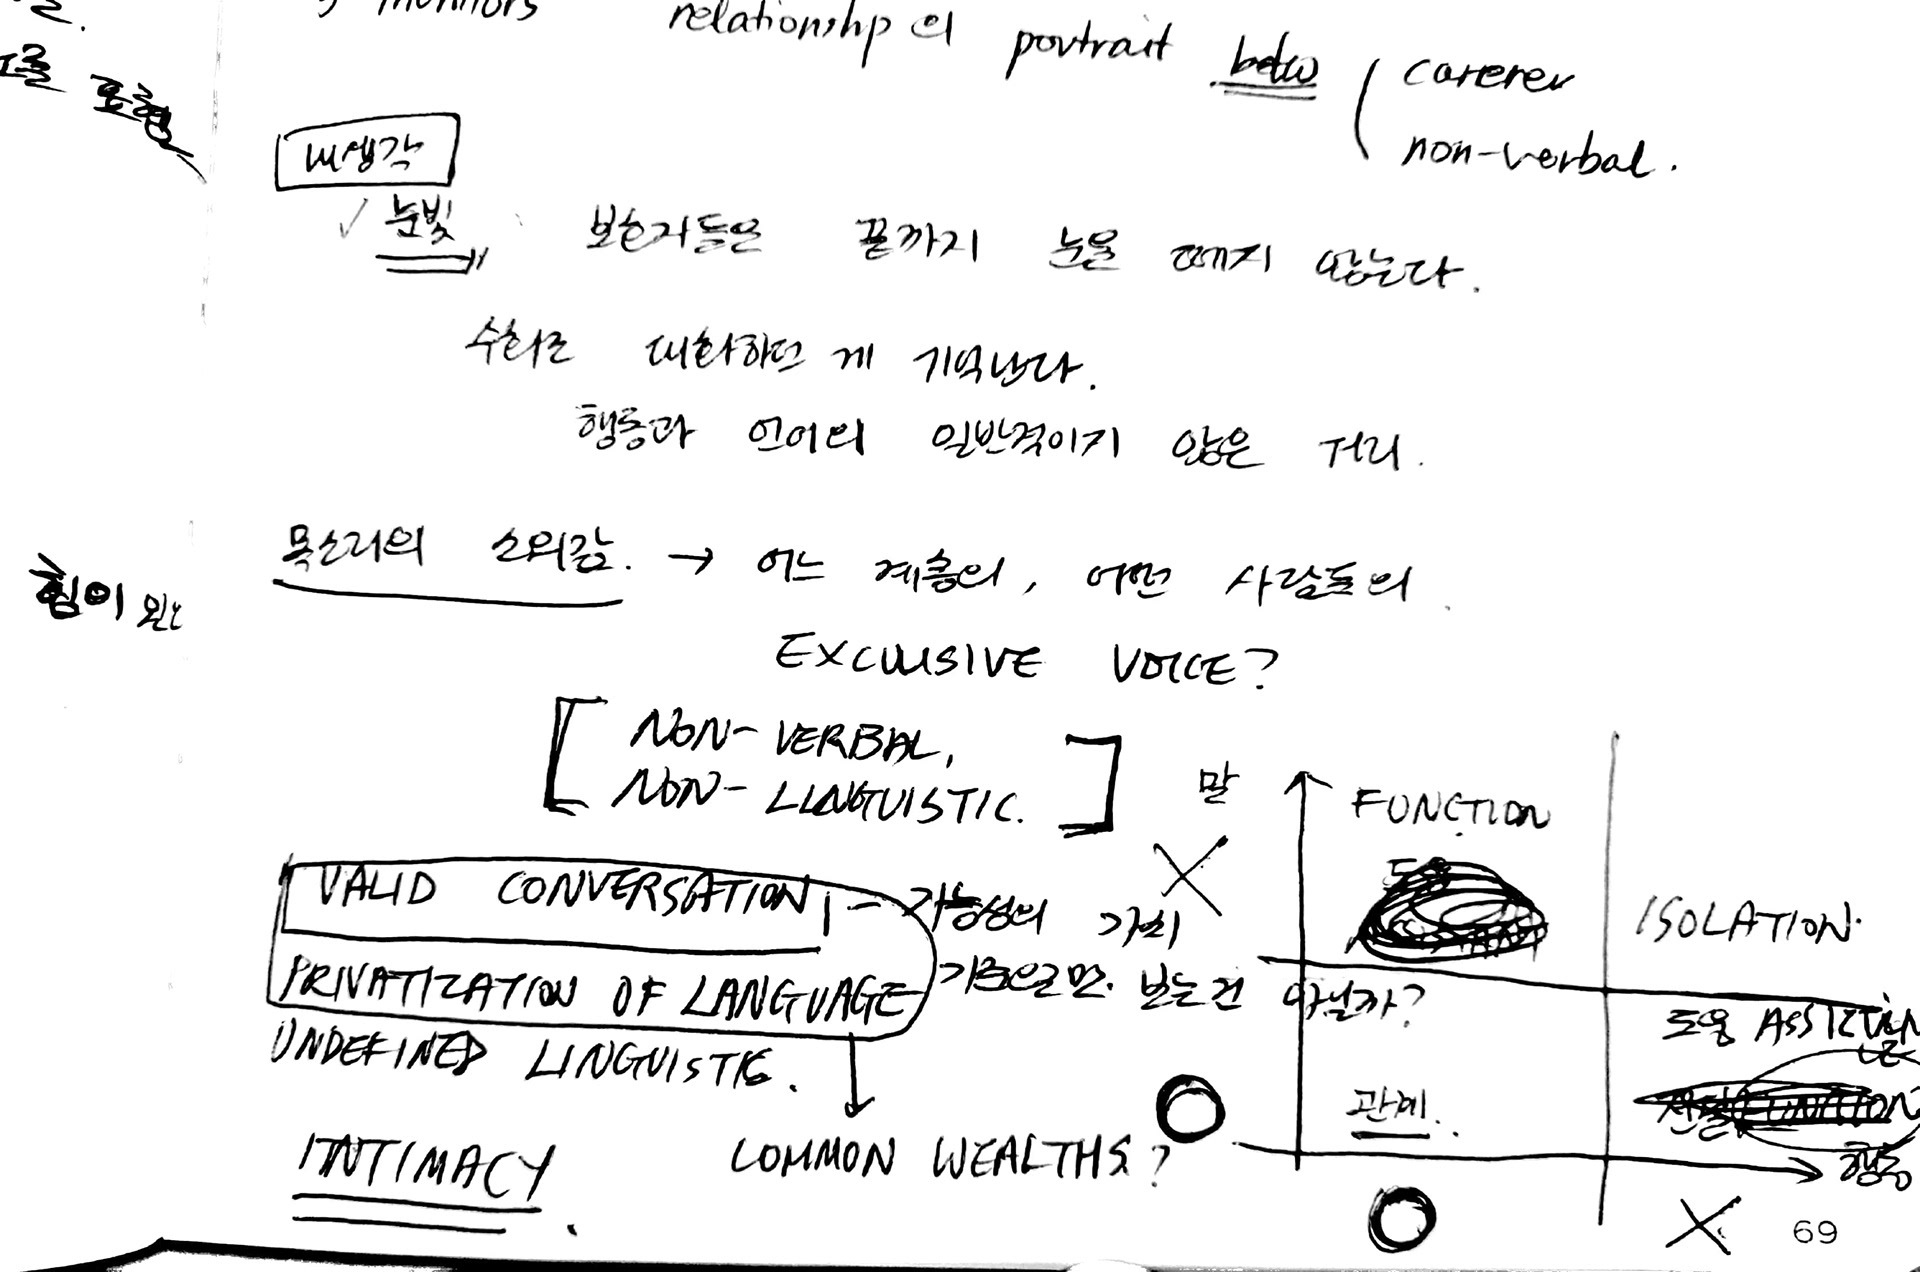 monitors relationship의 portrait betw
carerer
non-verbal.
고를 포함
내생각
✓ 눈빛 보호자들은 끝까지 눈을 떼지 않는다.
수화로 대화하던 게 기억난다.
행동과 언어의 일반적이지 않은 거리.
목소리의 소외감. → 어느 계층의, 어떤 사람들의
힘이 있는
EXCLUSIVE VOICE?
[ NON-VERBAL,
NON-LINGUISTIC. ]
말
FUNCTION
VALID CONVERSATION — 가능성의 가치
ISOLATION.
PRIVATIZATION OF LANGUAGE 기준으로만. 보는건 아닐까?
도움
UNDEFINED LINGUISTIC.
관계.
FUNCTION
INTIMACY
COMMON WEALTHS?
행동
69